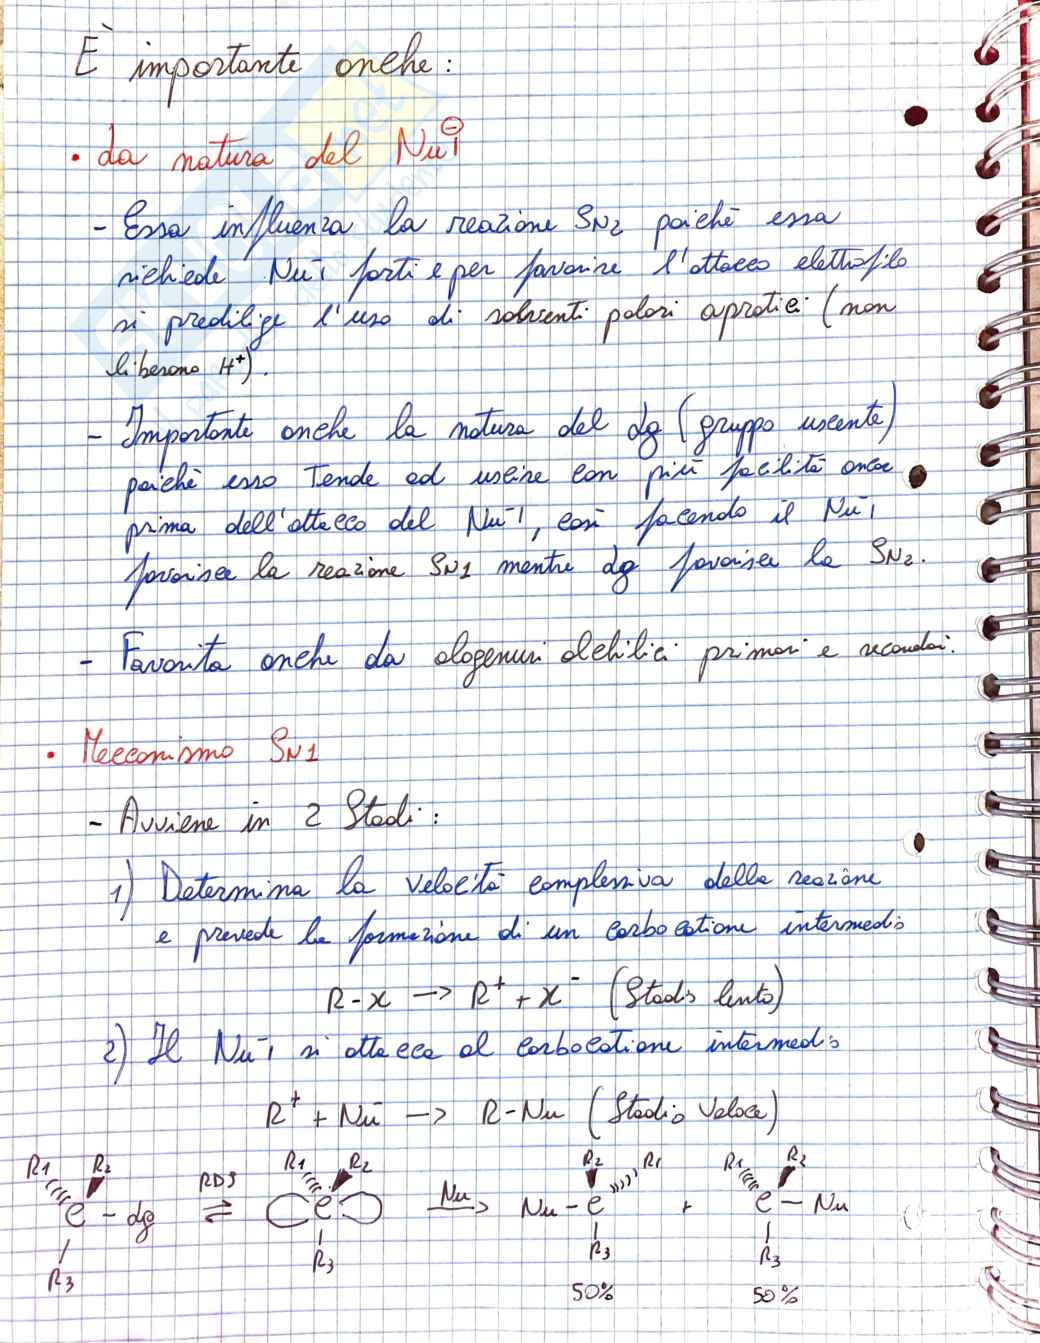 È importante anche:
• La natura del Nu⊖
- Essa influenza la reazione SN2 poichè essa
richiede Nu⁻ forti e per favorire l'attacco elettrofilo
si predilige l'uso di solventi polari aprotici (non
liberano H⁺).
- Importante anche la natura del Lg (gruppo uscente)
poichè esso Tende ad uscire con più facilità ancor
prima dell'attacco del Nu⁻, così facendo il Nu⁻
favorisce la reazione SN1 mentre Lg favorisce la SN2.
- Favorita anche da alogenuri alchilici primari e secondari.
• Meccanismo SN1
- Avviene in 2 Stadi:
1) Determina la velocità complessiva della reazione
e prevede la formazione di un carbocatione intermedio
R-X → R⁺ + X⁻ (Stadio lento)
2) Il Nu⁻ si attacca al carbocatione intermedio
R⁺ + Nu⁻ → R-Nu (Stadio Veloce)
R1 R2 R1 R2 R2 R1 R1 R2
RDS Nu
C - Lg ⇌ C → Nu - C + C - Nu
R3 R3 R3 R3
50% 50%